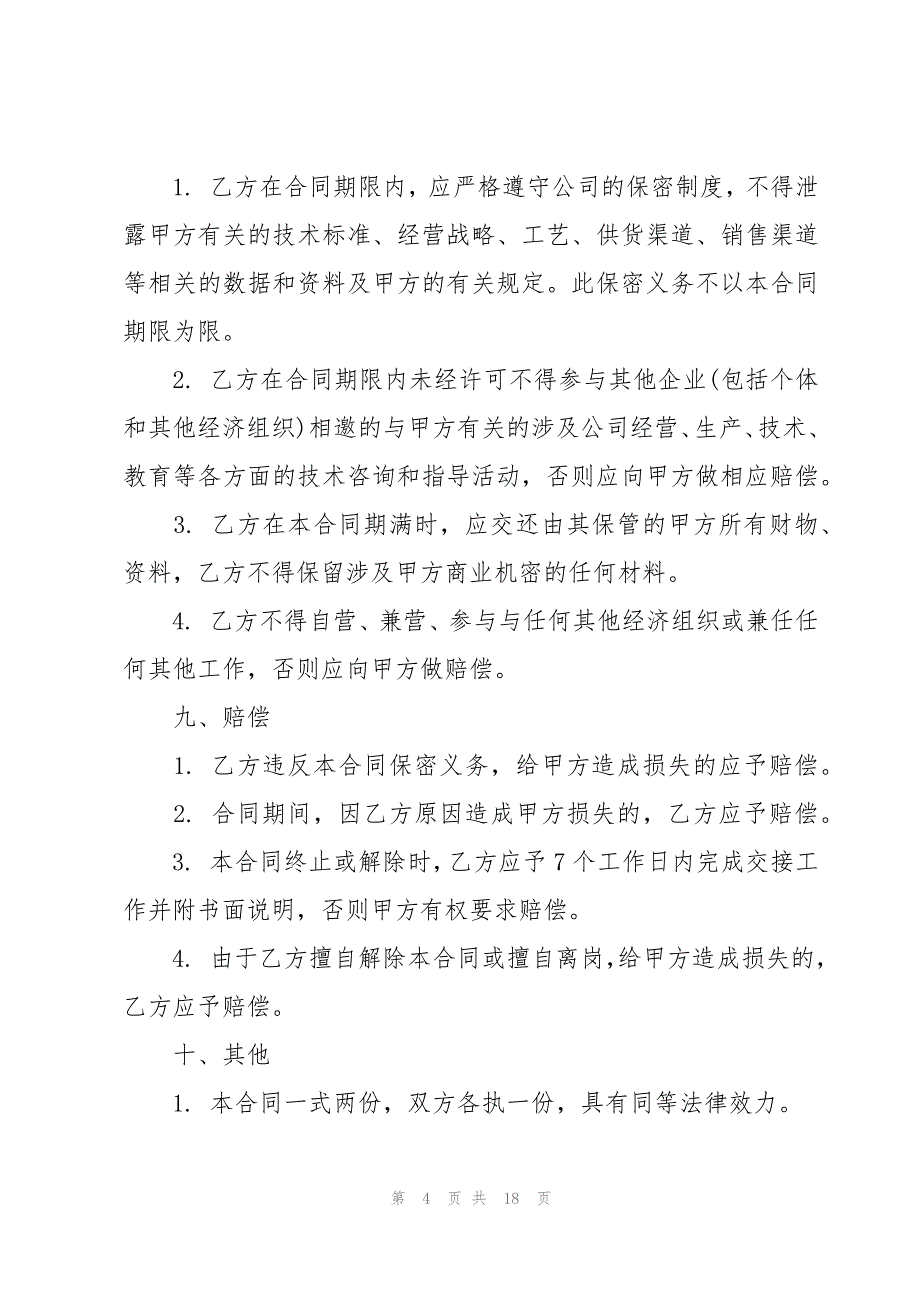 1. 乙方在合同期限内，应严格遵守公司的保密制度，不得泄
露甲方有关的技术标准、经营战略、工艺、供货渠道、销售渠道
等相关的数据和资料及甲方的有关规定。此保密义务不以本合同
期限为限。
2. 乙方在合同期限内未经许可不得参与其他企业(包括个体
和其他经济组织)相邀的与甲方有关的涉及公司经营、生产、技术、
教育等各方面的技术咨询和指导活动，否则应向甲方做相应赔偿。
3. 乙方在本合同期满时，应交还由其保管的甲方所有财物、
资料，乙方不得保留涉及甲方商业机密的任何材料。
4. 乙方不得自营、兼营、参与与任何其他经济组织或兼任任
何其他工作，否则应向甲方做赔偿。
九、赔偿
1. 乙方违反本合同保密义务，给甲方造成损失的应予赔偿。
2. 合同期间，因乙方原因造成甲方损失的，乙方应予赔偿。
3. 本合同终止或解除时，乙方应予7个工作日内完成交接工
作并附书面说明，否则甲方有权要求赔偿。
4. 由于乙方擅自解除本合同或擅自离岗，给甲方造成损失的，
乙方应予赔偿。
十、其他
1. 本合同一式两份，双方各执一份，具有同等法律效力。
第 4 页 共 18 页